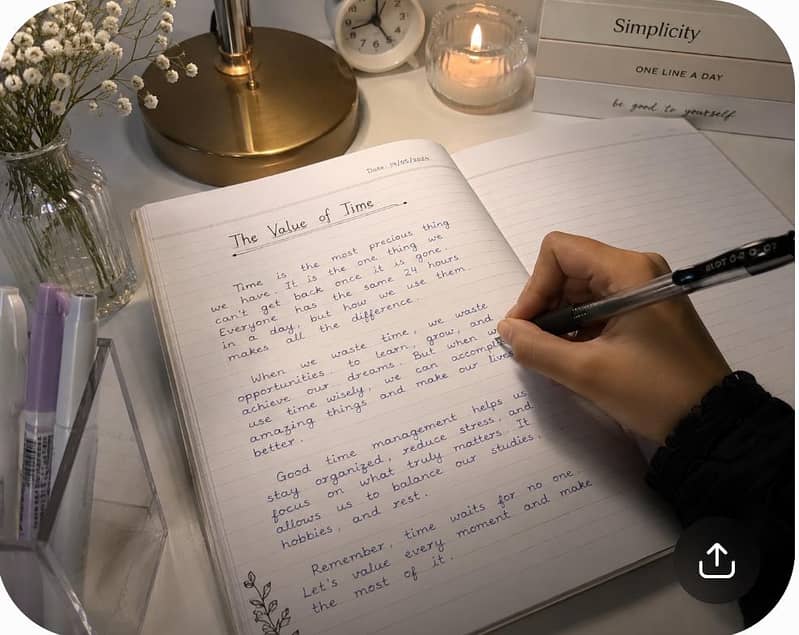 Simplicity
ONE LINE A DAY
be good to yourself
Date: 14/05/2024
The Value of Time
Time is the most precious thing
we have. It is the one thing we
can't get back once it is gone.
Everyone has the same 24 hours
in a day, but how we use them
makes all the difference.
When we waste time, we waste
opportunities to learn, grow, and
achieve our dreams. But when w
use time wisely, we can accompl
amazing things and make our lives
better.
Good time management helps us
stay organized, reduce stress, and
focus on what truly matters. It
allows us to balance our studies,
hobbies, and rest.
Remember, time waits for no one.
Let's value every moment and make
the most of it.